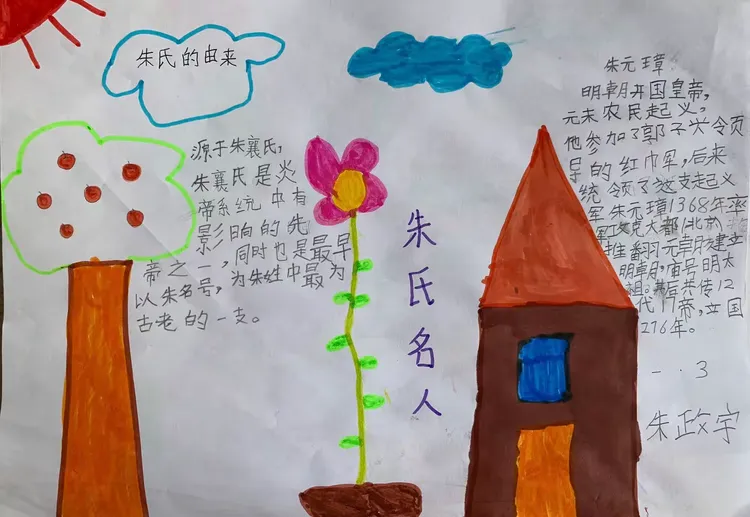 朱氏的由来
源于朱襄氏,
朱襄氏是炎
帝系统中有
影响的先
帝之一,同时也是最早
以朱名号,为朱姓中最为
古老的一支。
朱氏名人
朱元璋
明朝开国皇帝,
元末农民起义,
他参加了郭子兴领
导的红巾军,后来
统领了这支起义
军朱元璋1368年率
军攻克大都(北京
推翻元朝建立
明朝,庙号明太
祖。其后共传12
代17帝,立国
276年。
一.3
朱政宇